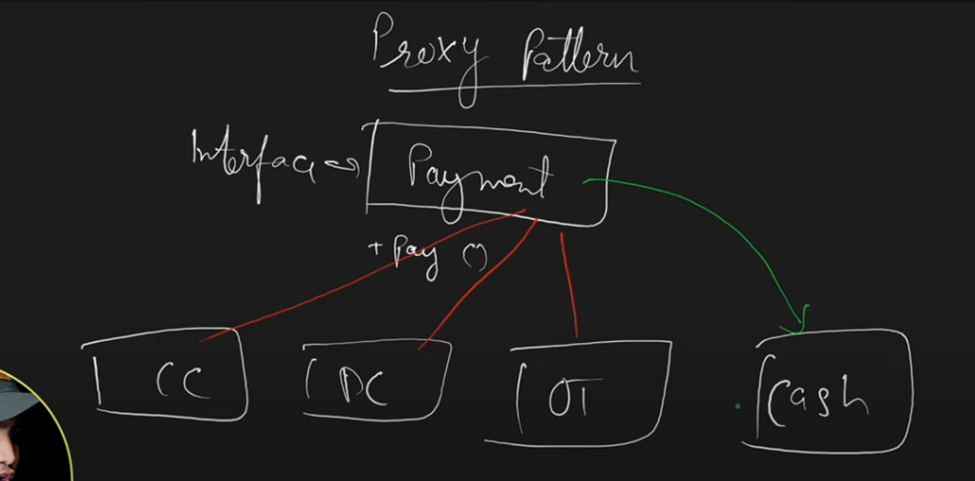 Proxy Pattern
Interface
Payment
+ Pay ()
CC
DC
OT
Cash